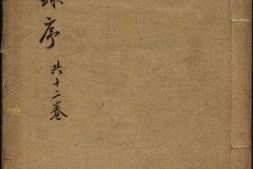 序
共十二卷